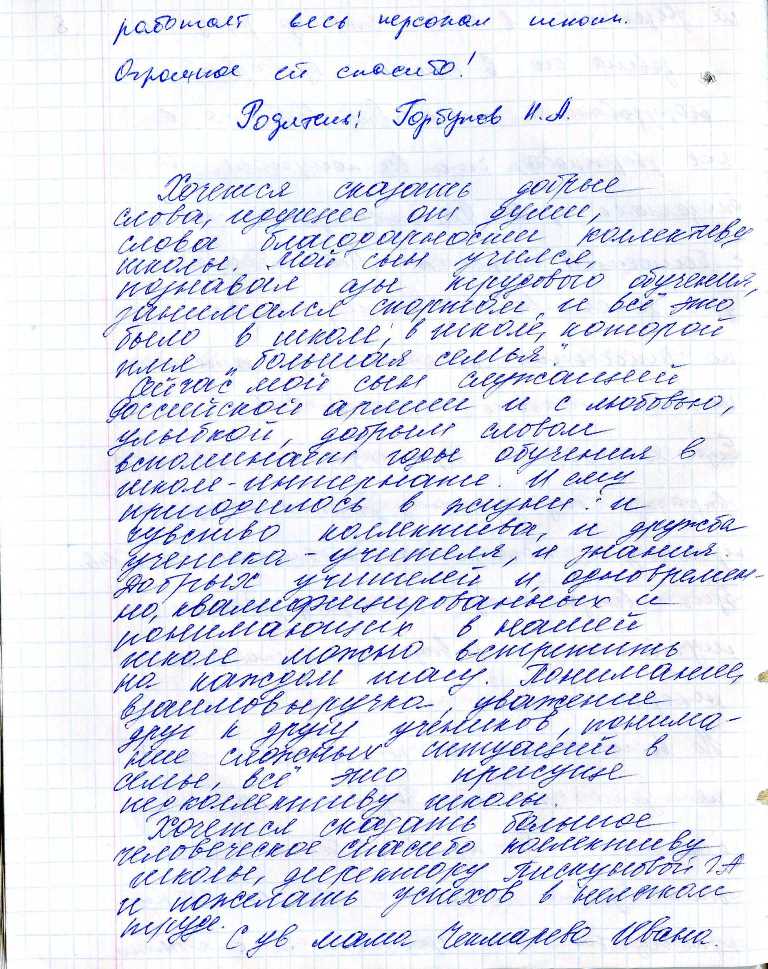 работает весь персонал школы.
Огромное ей спасибо!
Родитель: Горбунов Н.А.
Хочется сказать добрые
слова, идущие от души,
слова благодарности коллективу
школы. Мой сын учился,
познавал азы трудового обучения,
занимался спортом, и всё это
было в школе, в школе, которой
имя „большая семья".
Сейчас мой сын служащий
Российской армии и с любовью,
улыбкой, добрым словом
вспоминает годы обучения в
школе-интернате. И ему
пригодилось в жизни: и
чувство коллектива, и дружба
ученика - учителя, и знания
Добрых учителей и одновремен-
но, квалифицированных и
понимающих в нашей
школе можно встретить
на каждом шагу. Понимание,
взаимовыручка, уважение
друг к другу учеников, понима-
ние сложных ситуаций в
семье, всё это присуще
педколлективу школы.
Хочется сказать большое
человеческое спасибо коллективу
школы, директору Пискуновой Г.А
и пожелать успехов в нелёгком
труде.
С ув мама Чекмарева Ивана.